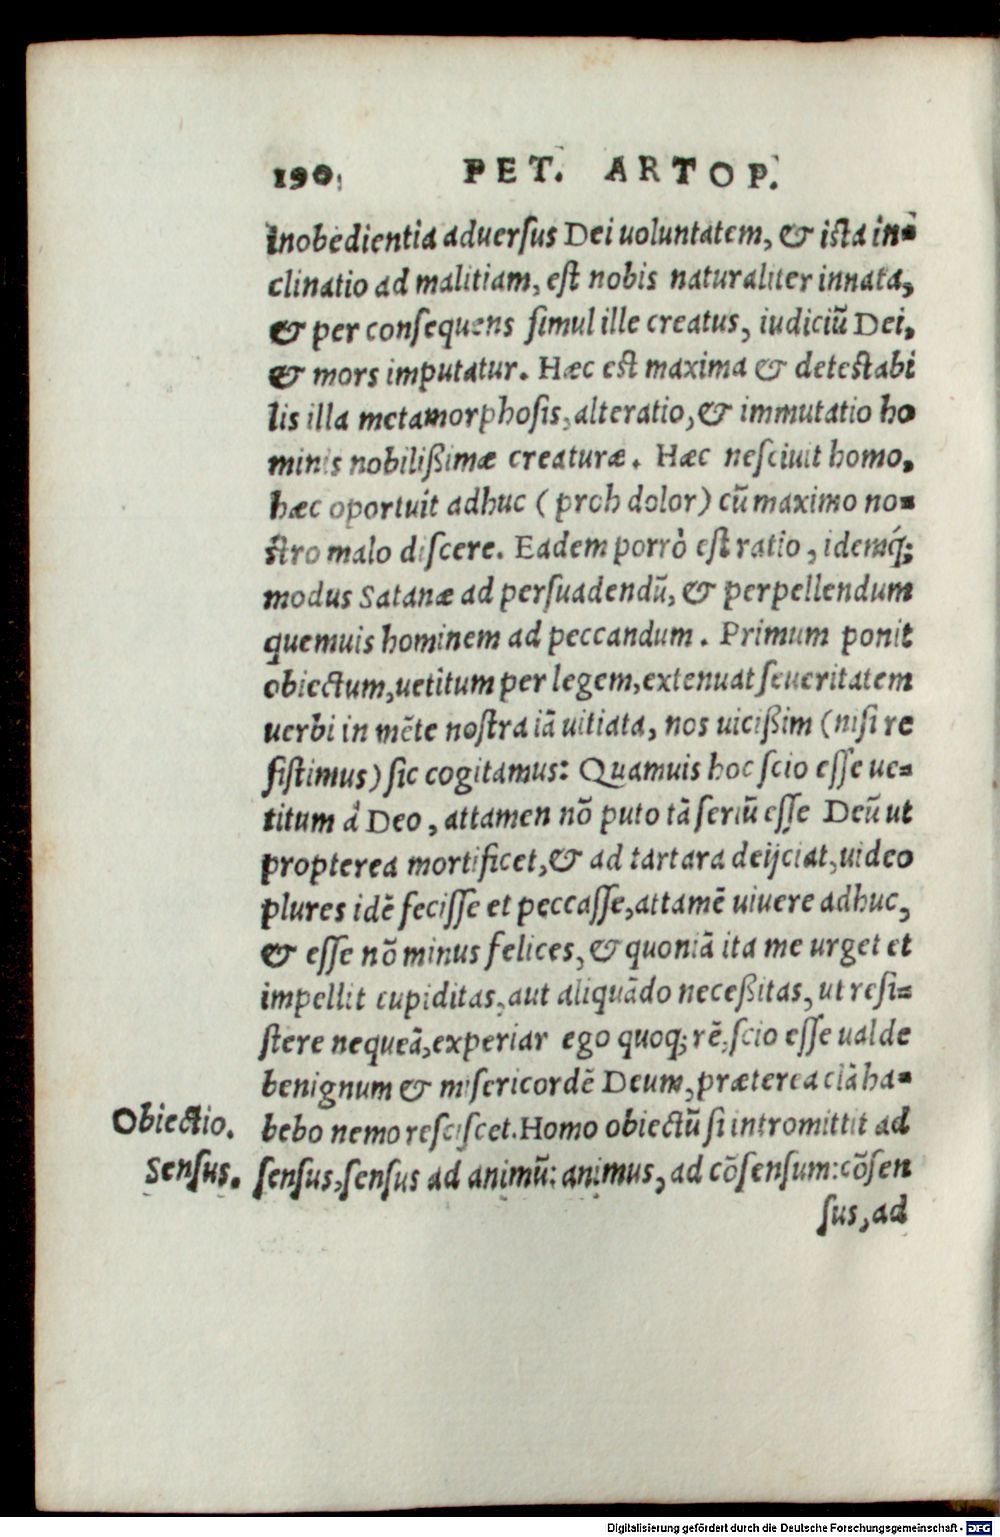 190, PET. ARTOP.
inobedientia aduerſus Dei uoluntatem, & iſta in-
clinatio ad malitiam, eſt nobis naturaliter innata,
& per conſequens ſimul ille creatus, iudiciũ Dei,
& mors imputatur. Hæc eſt maxima & deteſtabi
lis illa metamorphoſis, alteratio, & immutatio ho
minis nobilißimæ creaturæ. Hæc neſciuit homo,
hæc oportuit adhuc (proh dolor) cũ maximo no-
ſtro malo diſcere. Eadem porrò eſt ratio, idemq́;
modus Satanæ ad perſuadendũ, & perpellendum
quemuis hominem ad peccandum. Primum ponit
obiectum, uetitum per legem, extenuat ſeueritatem
uerbi in mẽte noſtra iã uitiata, nos uicißim (niſi re
ſiſtimus) ſic cogitamus: Quamuis hoc ſcio eſſe ue-
titum à Deo, attamen nõ puto tã ſeriũ eſſe Deũ ut
propterea mortificet, & ad tartara deijciat, uideo
plures idẽ feciſſe et peccaſſe, attamẽ uiuere adhuc,
& eſſe nõ minus felices, & quoniã ita me urget et
impellit cupiditas, aut aliquãdo neceßitas, ut reſi-
ſtere nequeã, experiar ego quoq; rẽ, ſcio eſſe ualde
benignum & miſericordẽ Deum, præterea clã ha-
Obiectio. bebo nemo reſciſcet. Homo obiectũ ſi intromittit ad
Senſus. ſenſus, ſenſus ad animũ: animus, ad cõſenſum: cõſen
ſus, ad
Digitalisierung gefördert durch die Deutsche Forschungsgemeinschaft - DFG